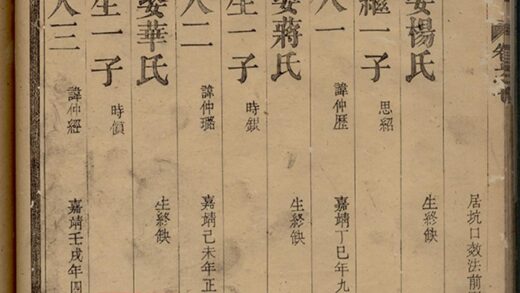 居坑口效法前
娶楊氏 生終缺
繼一子 思紹
一 諱仲歷 嘉靖丁巳年九
娶蔣氏 生終缺
生一子 時銀
二 諱仲璐 嘉靖己未年正
娶華氏 生終缺
生一子 時
三 諱仲經 嘉靖壬戌年四